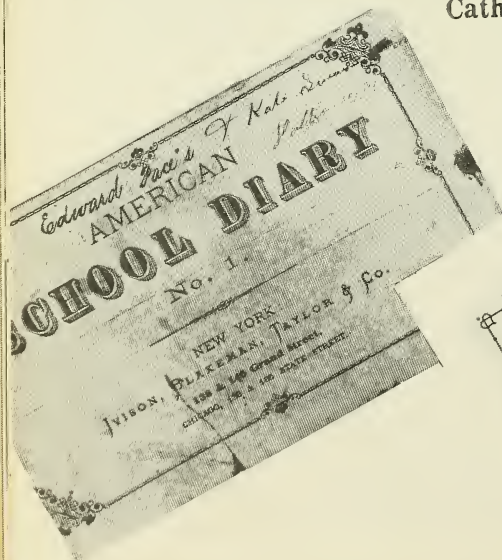 Cath
Edward Pace's & Kate
AMERICAN
SCHOOL DIARY
No. 1.
NEW YORK
IVISON, BLAKEMAN, TAYLOR & Co.
138 & 140 Grand Street.
CHICAGO, 133 & 135 STATE STREET.